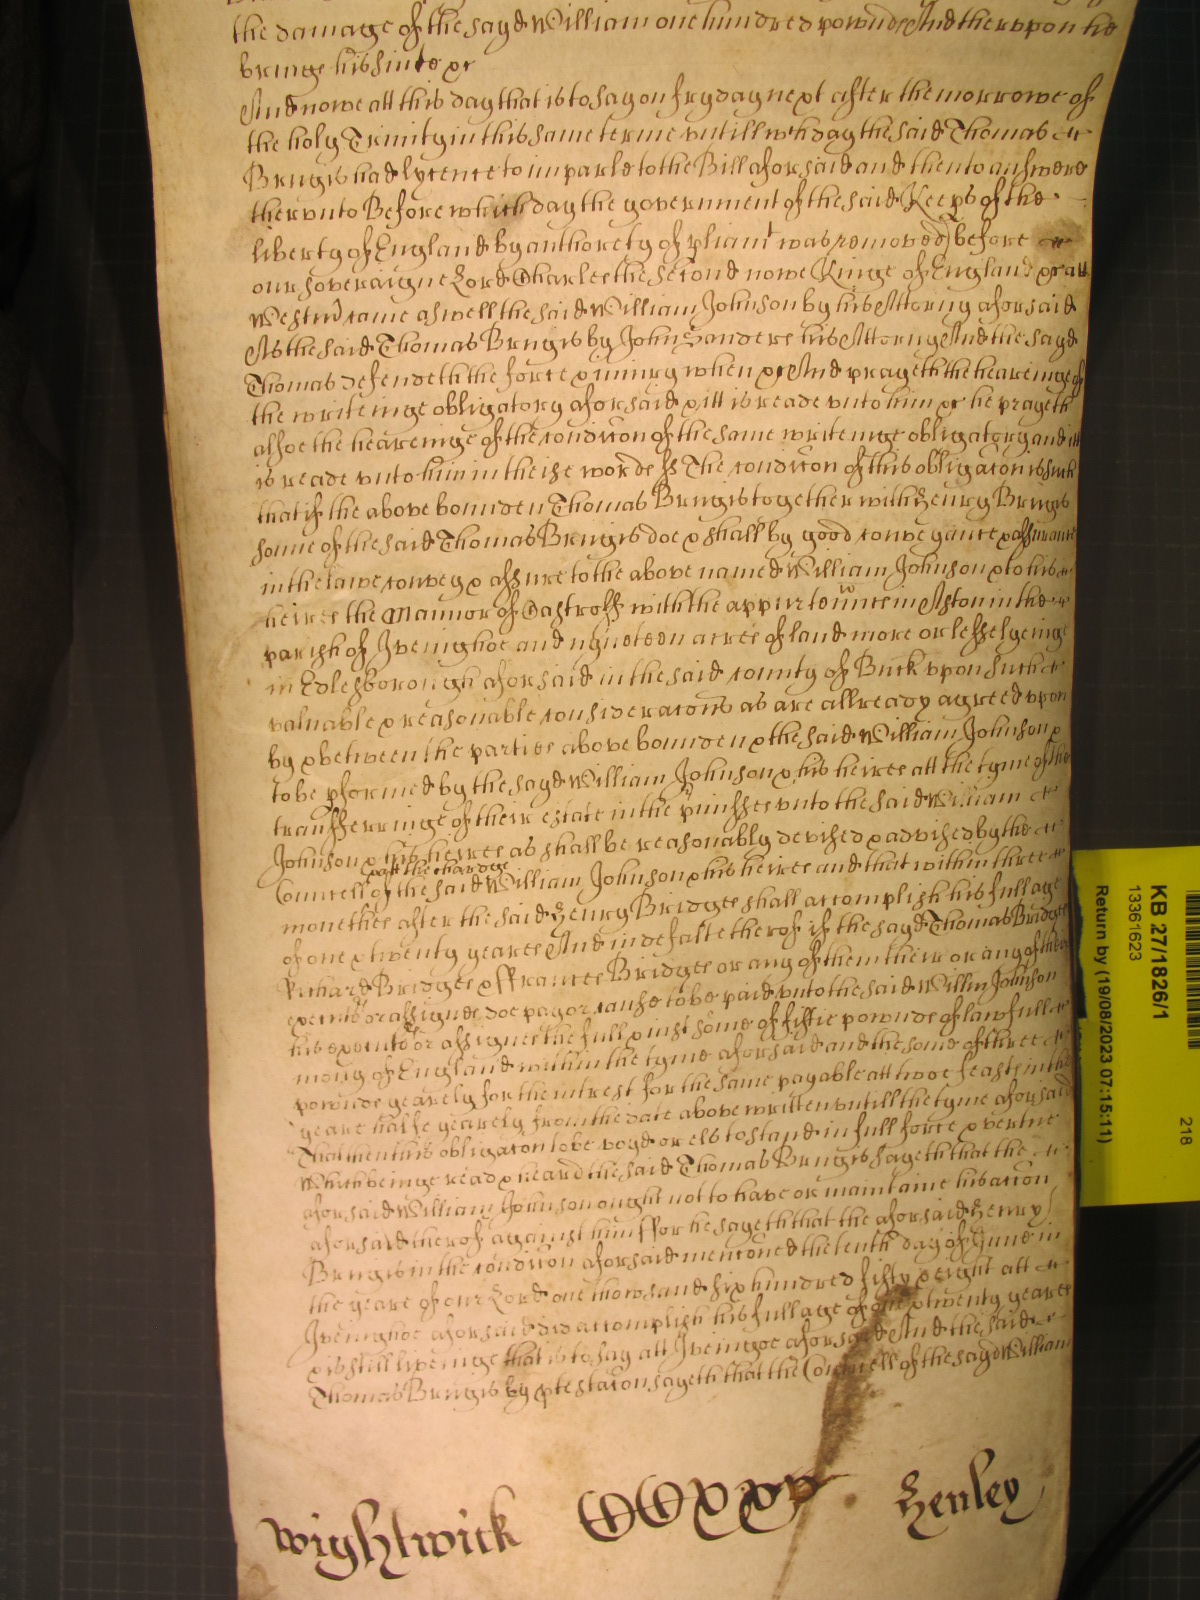 the damage of the sayd William one hundred pownds And therupon he
bringe his suite &c
And nowe att this day that is to say on fryday next after the morrowe of
the holy Trinity in this same terme untill wch day the said Thomas
Brugis had lycence to imparle to the Bill aforsaid and then to answere
therunto Before which day the government of the said Keeps of the
liberty of England by authorety of pliamt was removed before
our soveraigne Lord Charles the second nowe Kinge of England &c att
Westmr came aswell the said William Johnson by his Attorny aforsaid
As the said Thomas Brugis by John Sanders his Attorny And the sayd
Thomas defendeth the force & iniury when &c And prayeth the heareinge of
the writeinge obligatory aforsaid & itt is reade unto him &c he prayeth
alsoe the heareinge of the condicon of the same writeinge obligatory and itt
is reade unto him in theise words ss The condicon of this obligacon is such
that if the above bounden Thomas Brugis together with Henry Brugis
sonne of the said Thomas Brugis doe & shall by good conveyance & assurance
in the lawe convey & assure to the above named William Johnson & to his
heires the Mannor of Castrolss with the appurtennces in Aston in the
parish of Iveinghoe and nyneteen acres of land more or lesse lyeinge
in Edlesborough aforsaid in the said county of Buck upon such
valuable & reasonable consideracons as are allready agreed upon
by & betweene the parties above bounden & the said William Johnson &
to be pformed by the sayd William Johnson & his heires att the tyme of the
transferringe of their estate in the pmisses unto the said William
Johnson & his heires as shall be reasonably devised & advised by the
& att the chardge
Councell of the said William Johnson & his heires and that within three
monethes after the said Henry Bridges shall accomplish his full age
of one & twenty yeares And in defalte therof if the sayd Thomas Bridges
Richard Bridges & ffrances Bridges or any of them their or any of their
executrs or assignes doe pay or cause to be paid unto the said Willm Johnson
his executrs or assignes the full & just some of fiftie pownds of lawfull
mony of England within the tyme aforsaid and the some of three
pownds yearely for the intrest for the same payable att twoe feasts in the
yeare halfe yearely from the date above written untill the tyme aforsaid
That then this obligacon to be voyd or els to stand in full force & vertue
Which beinge read & heard the said Thomas Brugis sayeth that the
aforsaid William Johnson ought not to have or maintaine his accon
aforsaid therof against him ffor he sayeth that the aforsaid Henry
Brugis in the condicon aforsaid mencioned the tenth day of June in
the yeare of our Lord one thowsand six hundred fifty & eight att
Iveinghoe aforsaid did accomplish his full age of one & twenty yeares
& is still liveinge that is to say att Iveingoe aforsaid And the said
Thomas Brugis by ptestacon sayeth that the Councell of the sayd William
Wightwick CCXXV Henley
KB 27/1826/1
13361623
Return by (19/08/2023 07:15:11)
218